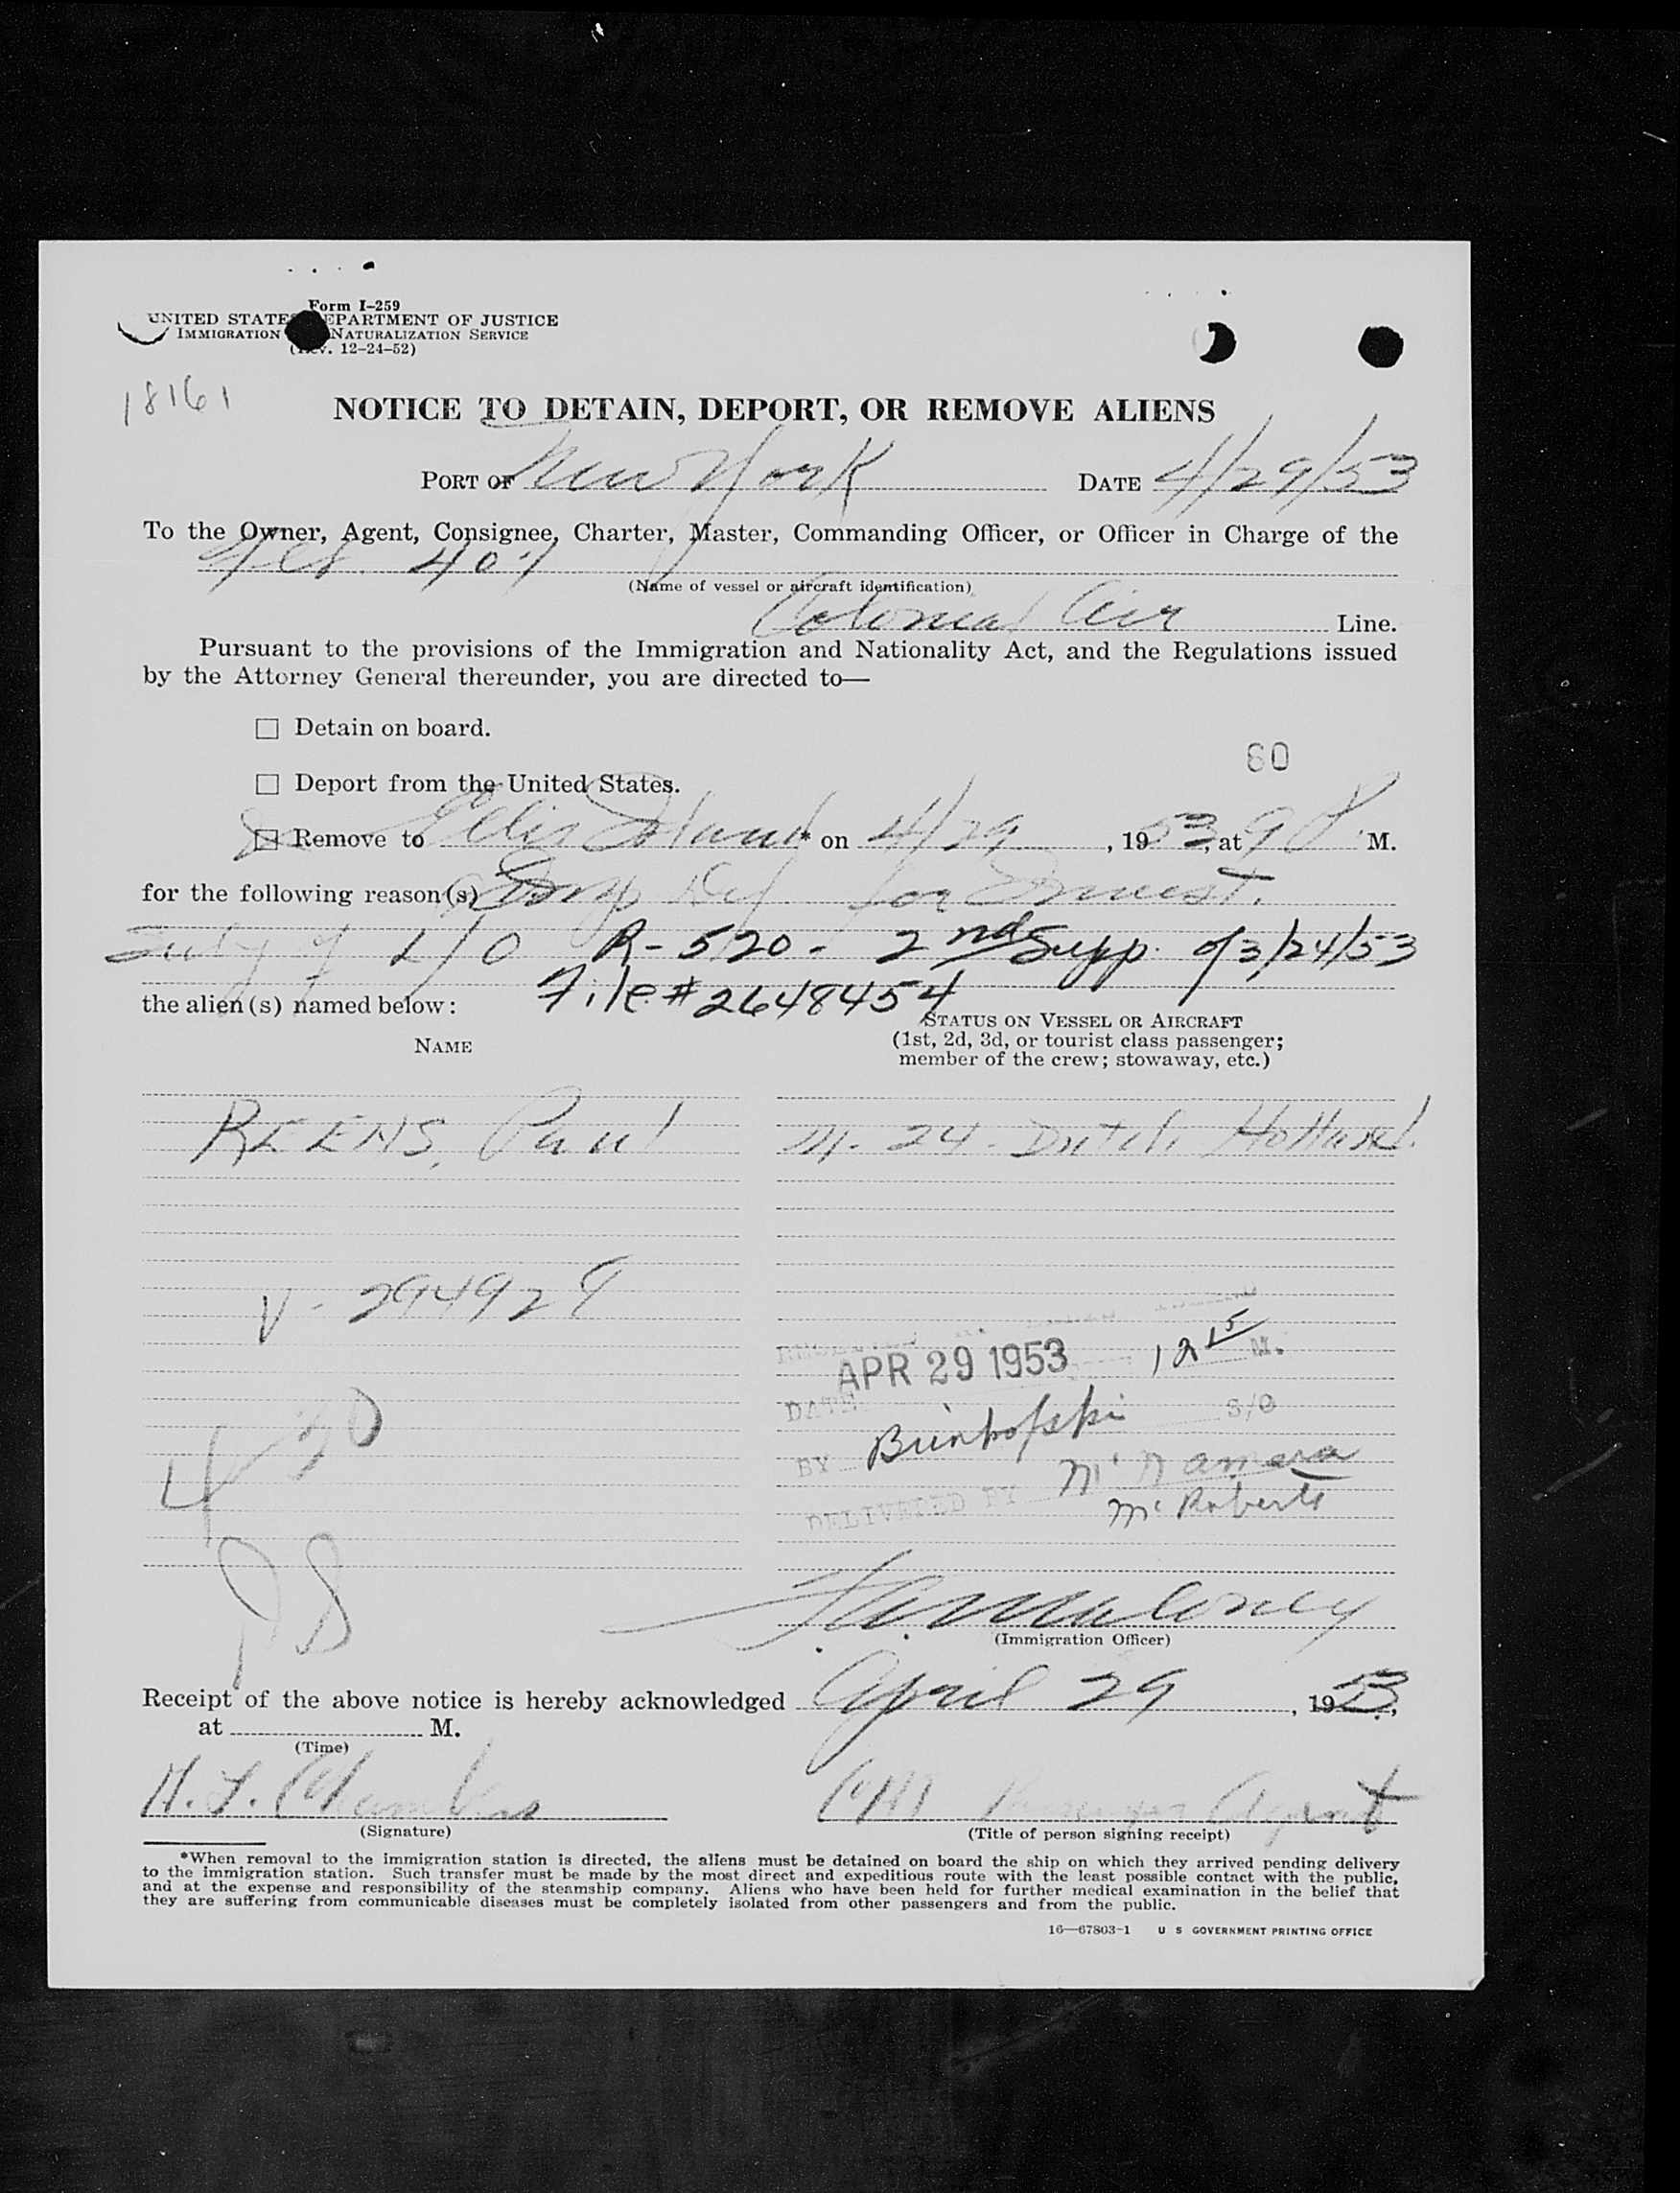 Form I-259
UNITED STATES DEPARTMENT OF JUSTICE
IMMIGRATION NATURALIZATION SERVICE
(Rev. 12-24-52)
18161
NOTICE TO DETAIN, DEPORT, OR REMOVE ALIENS
PORT OF New York DATE 4/29/53
To the Owner, Agent, Consignee, Charter, Master, Commanding Officer, or Officer in Charge of the
407
(Name of vessel or aircraft identification)
Colonial Air Line.
Pursuant to the provisions of the Immigration and Nationality Act, and the Regulations issued
by the Attorney General thereunder, you are directed to—
☐ Detain on board.
60
☐ Deport from the United States.
Remove to Ellis Island * on 4/29, 1953, at 9 P M.
for the following reason(s) for
R-520- 2nd Supp. of 3/24/53
the alien(s) named below: File # 2648454
STATUS ON VESSEL OR AIRCRAFT
NAME (1st, 2d, 3d, or tourist class passenger;
member of the crew; stowaway, etc.)
REENS, Paul M- 24- Dutch Holland
V- 294929
APR 29 1953 12 15 M.
DATE
S/O
BY
McNamera
DELIVERED BY
McRoberts
Maloney
(Immigration Officer)
Receipt of the above notice is hereby acknowledged April 29, 1953,
at M.
(Time)
H. L. Chambers Passenger Agent
(Signature) (Title of person signing receipt)
*When removal to the immigration station is directed, the aliens must be detained on board the ship on which they arrived pending delivery
to the immigration station. Such transfer must be made by the most direct and expeditious route with the least possible contact with the public,
and at the expense and responsibility of the steamship company. Aliens who have been held for further medical examination in the belief that
they are suffering from communicable diseases must be completely isolated from other passengers and from the public.
16—67803-1 U S GOVERNMENT PRINTING OFFICE